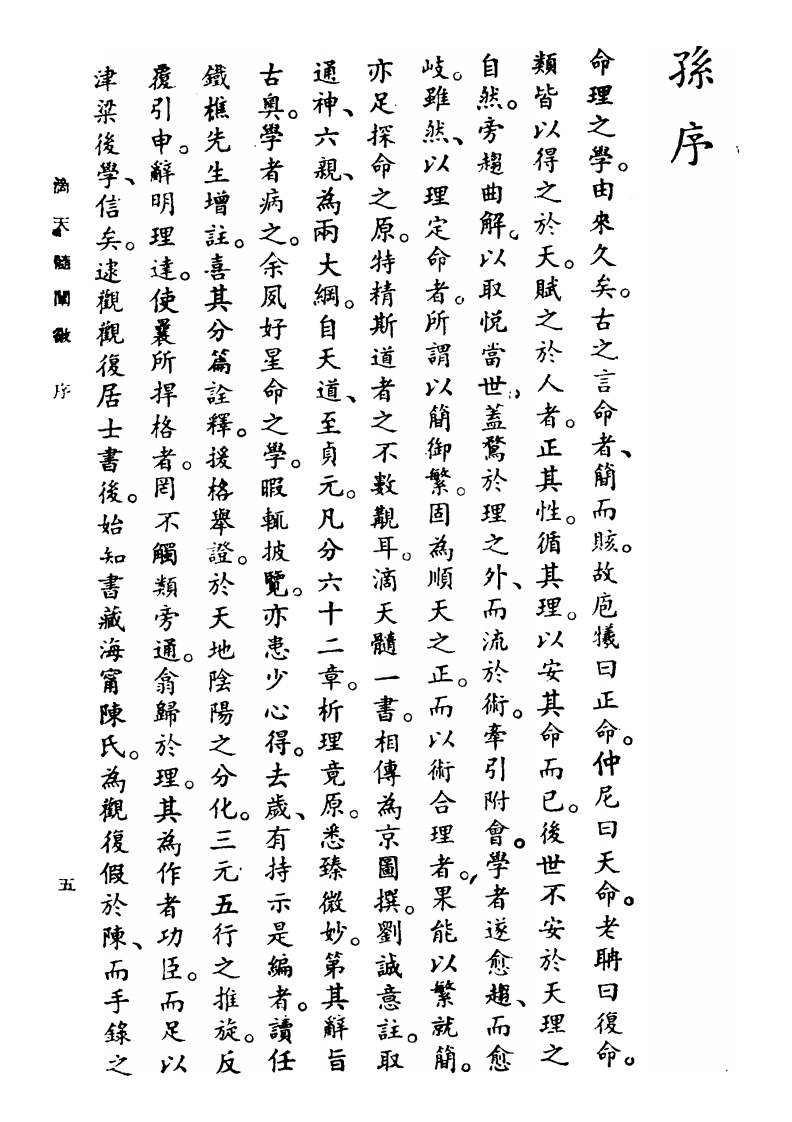 孫序
命理之學。由來久矣。古之言命者、簡而賅。故庖犧曰正命。仲尼曰天命。老聃曰復命。
類皆以得之於天。賦之於人者。正其性。循其理。以安其命而已。後世不安於天理之
自然。旁趨曲解。以取悅當世。蓋騖於理之外、而流於術。牽引附會。學者遂愈趨、而愈
岐。雖然、以理定命者。所謂以簡御繁。固為順天之正。而以術合理者。果能以繁就簡。
亦足探命之原。特精斯道者之不數覯耳。滴天髓一書。相傳為京圖撰。劉誠意註。取
通神、六親、為兩大綱。自天道、至貞元。凡分六十二章。析理竟原。悉臻微妙。第其辭旨
古奧。學者病之。余夙好星命之學。暇輒披覽。亦患少心得。去歲、有持示是編者。讀任
鐵樵先生增註。喜其分篇詮釋。援格舉證。於天地陰陽之分化。三元五行之推旋。反
覆引申。辭明理達。使曩所捍格者。罔不觸類旁通。翕歸於理。其為作者功臣。而足以
津梁後學、信矣。逮觀觀復居士書後。始知書藏海甯陳氏。為觀復假於陳、而手錄之
滴天髓闡微 序
五